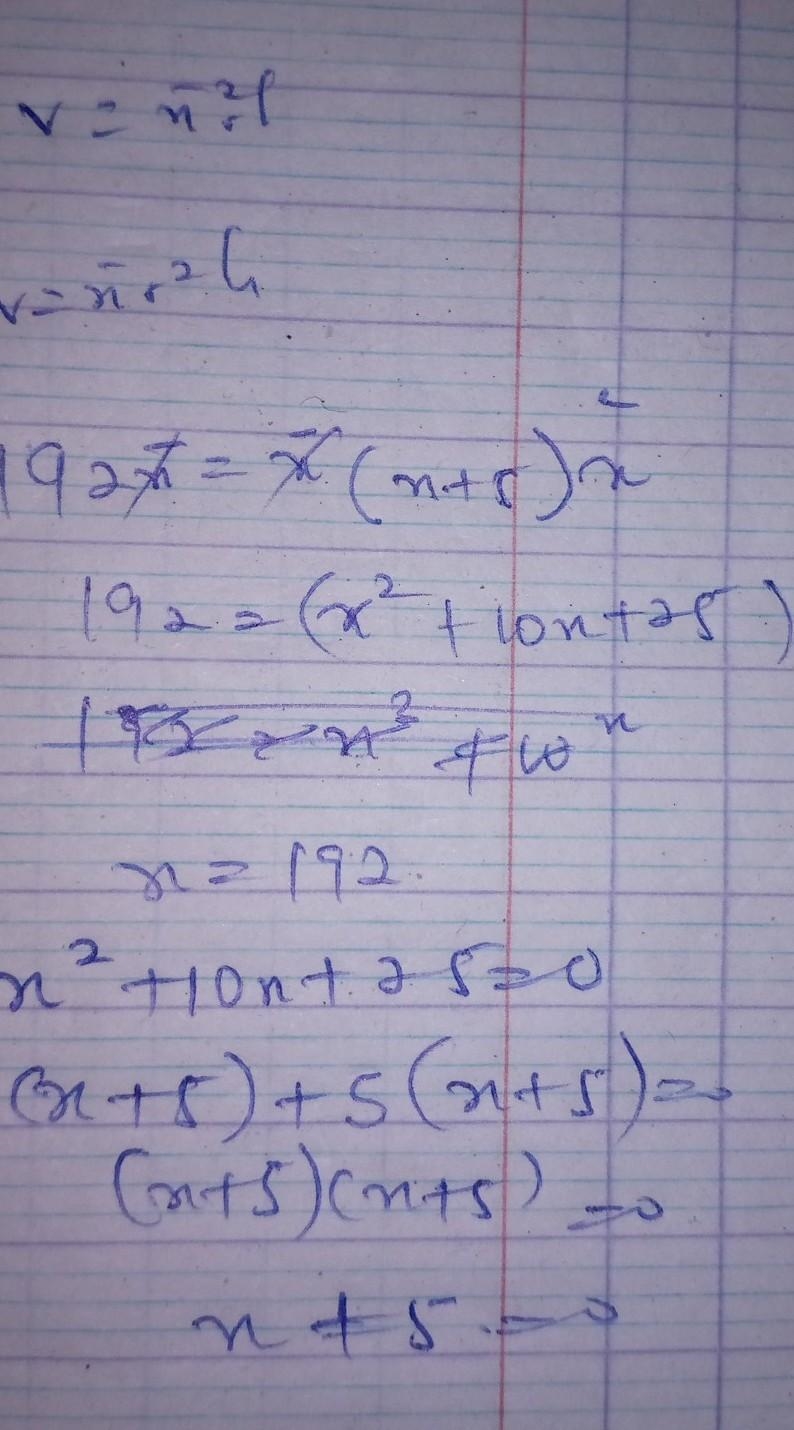 v = π r² l
v = π r² h
192π = π (x+5) x²
192 = (x² + 10x + 25)
x³ + 10 x
x = 192.
x² + 10x + 25 = 0
(x+5) + 5(x+5) = 0
(x+5)(x+5) = 0
x + 5 = 0